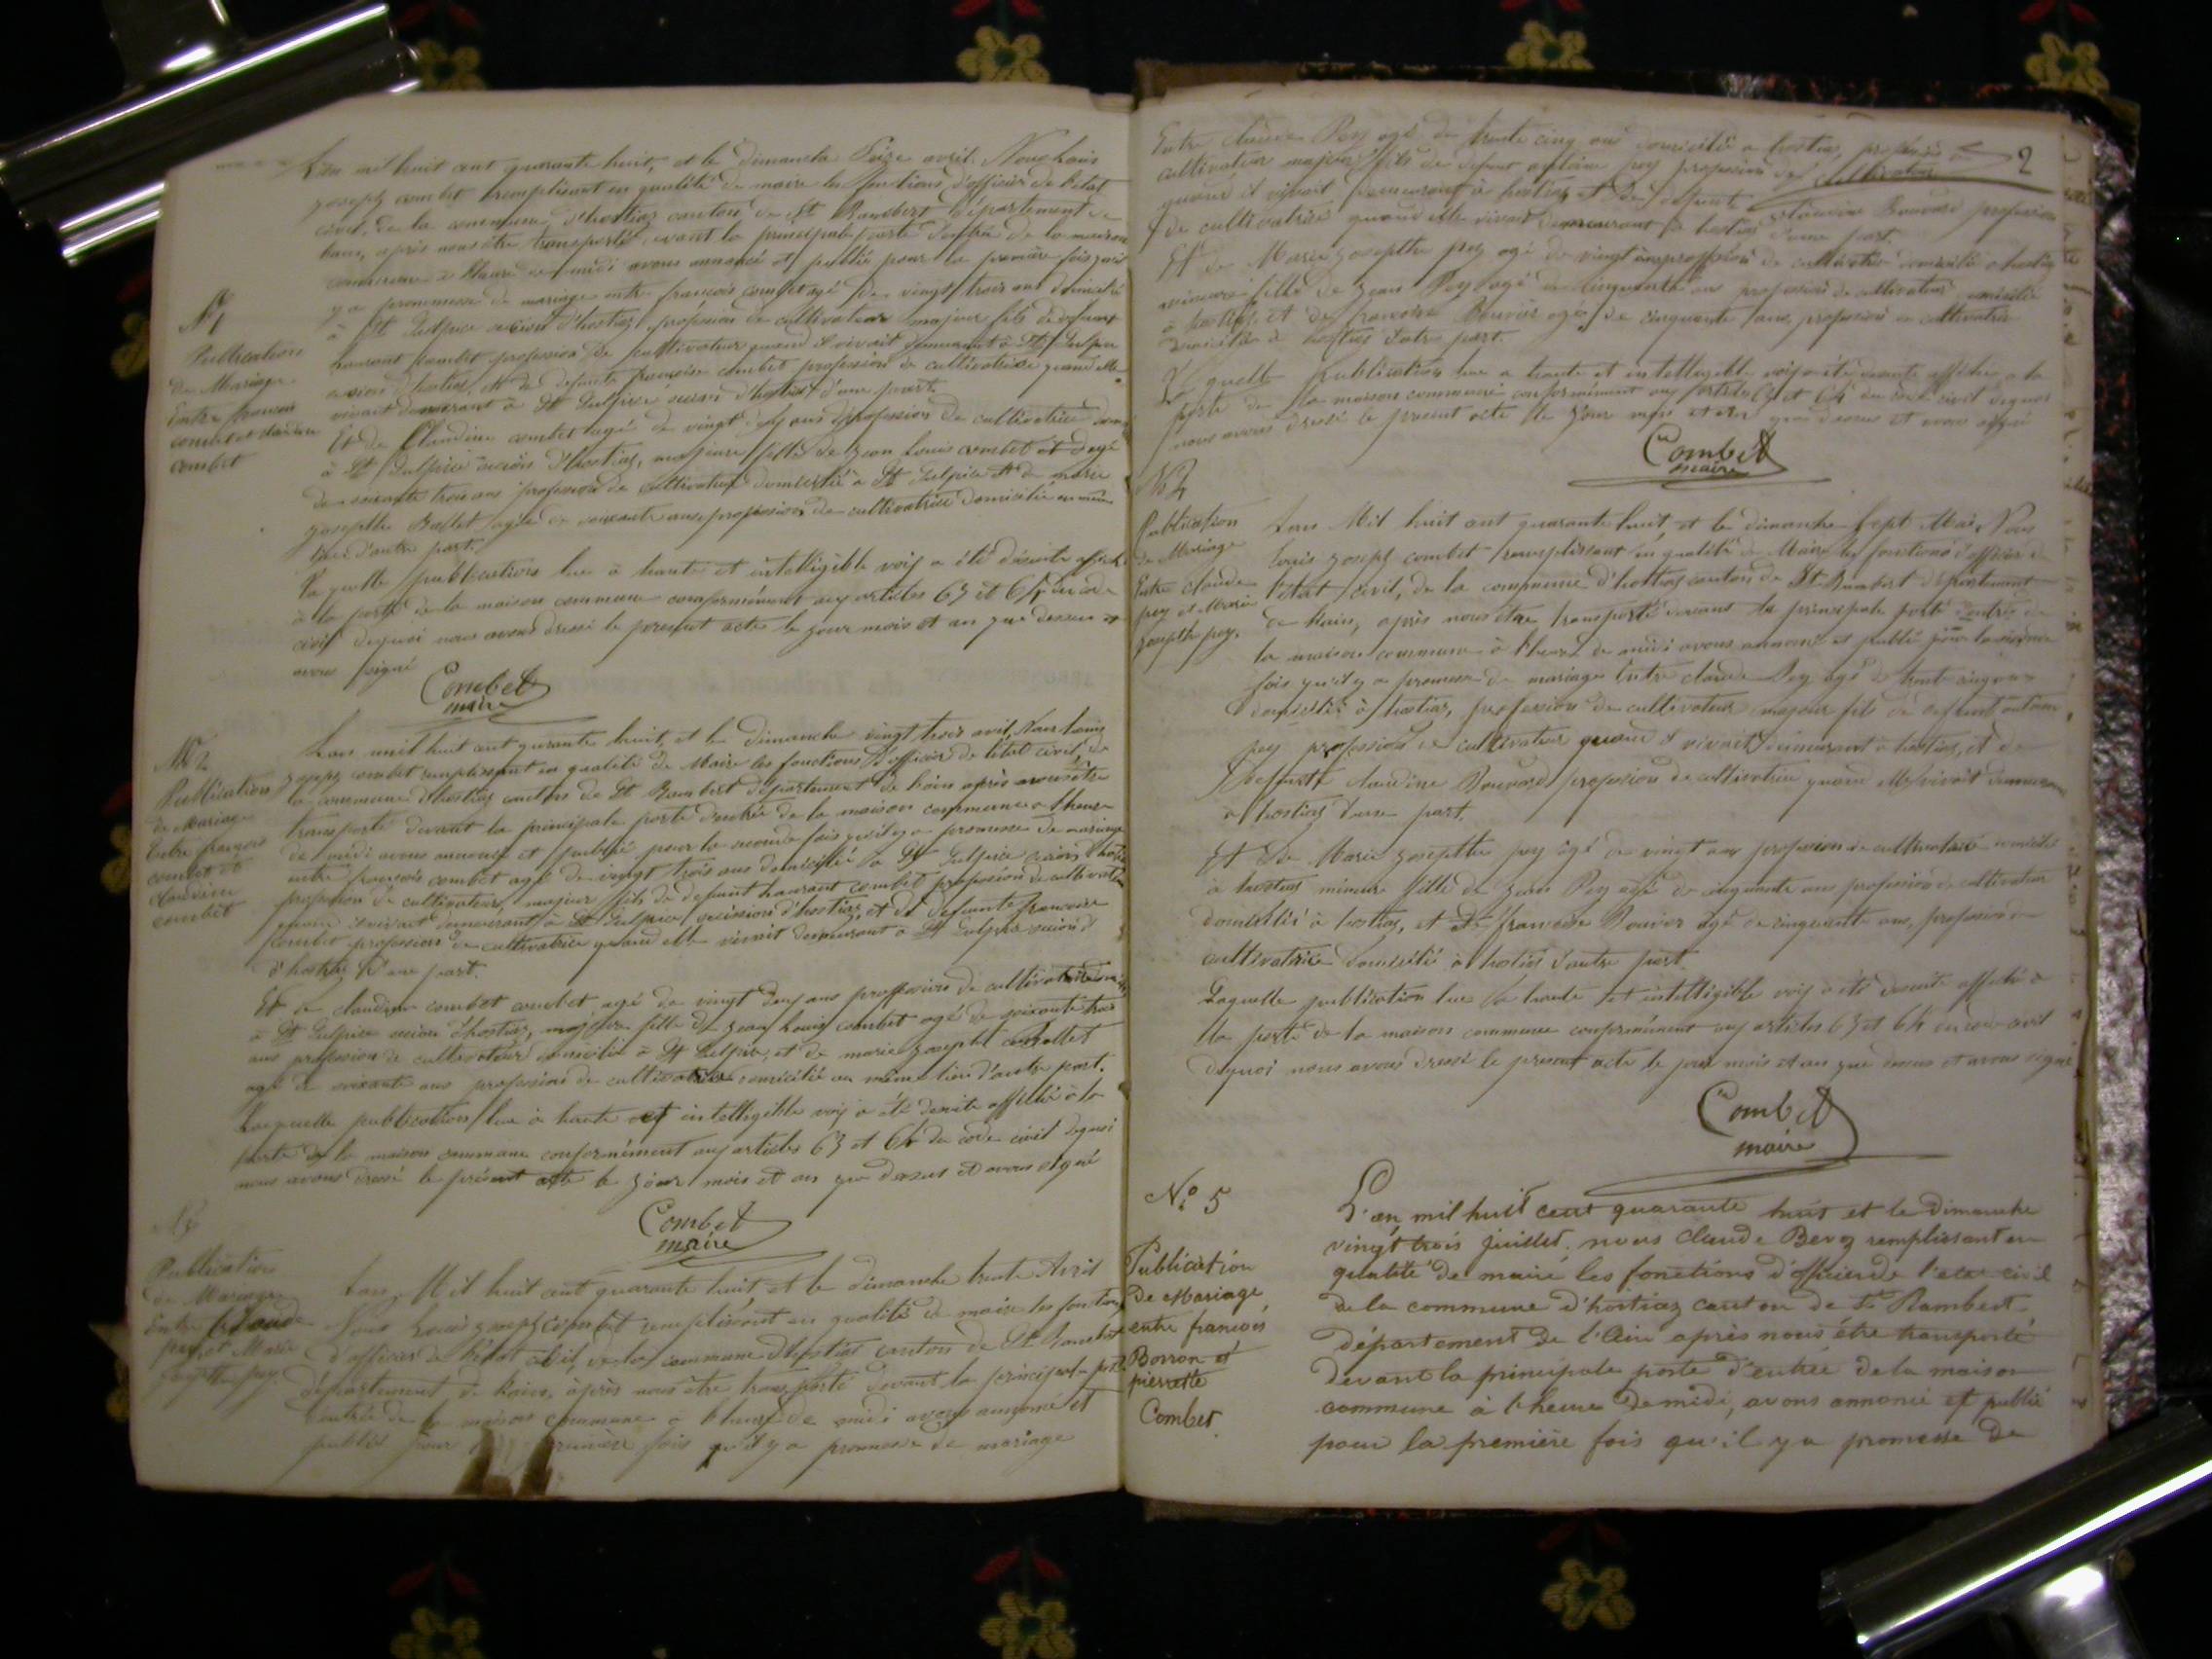 Lan mil huit cent quarante huit, et le dimanche Seize avril. Nous louis
joseph combet remplissant en qualité de maire les fonctions d'officier de l'état
civil, de la commune d'hostiaz canton de St Rambert département de
lain, après nous être transporté devant la principale porte d'entrée de la maison
commune a lheure de midi avons annoncé et publié pour la première fois quil
y a promesse de mariage entre francois combet agé de vingt trois ans domicilié
à St Sulpice d'hostiaz, profession de cultivateur majeur fils de defunt
combet profession de cultivateur quand il vivait demeurant à St Sulpice
d'hostiaz, et de defunte francoise combet profession de cultivatrice quand elle
vivait demeurant à St Sulpice d'hostiaz d'une part.
Et de Claudine combet agé de vingt ans profession de cultivatrice
à St Sulpice d'hostiaz, majeure fille de jean louis combet agé
de soixante trois ans profession de cultivateur domicilié à St Sulpice et de marie
josephte Ballet agée de soixante ans profession de cultivatrice domicilié au même
lieu d'autre part.
Laquelle publication lue à haute et intelligible voix a été affiché
à la porte de la maison commune conformément aux articles 63 et 64 du code
civil dequoi nous avons dressé le présent acte le jour mois et an que dessus et
avons signé
Combet
maire
N° 1
Publication
de Mariage
Entre francois
combet et claudine
combet
N° 2
Publication
de Mariage
Entre françois
combet et
claudine
combet
Lan mil huit cent quarante huit, et le dimanche vingt trois avril, Nous louis
joseph combet remplissant en qualité de Maire les fonctions d'officier de létat civil, de
la commune d'hostiaz canton de St Rambert département de lain après nous être
transporté devant la principale porte d'entrée de la maison commune a lheure
de midi avons annoncé et publié pour la seconde fois quil y a promesse de mariage
entre françois combet agé de vingt trois ans domicilié à St Sulpice
profession de cultivateur, majeur fils de defunt combet profession de cultivateur
quand il vivait demeurant à St Sulpice d'hostiaz, et de defunte francoise
combet profession de cultivatrice quand elle vivait demeurant à St Sulpice
d'hostiaz d'une part.
Et de claudine combet combet agé de vingt ans profession de cultivatrice
à St Sulpice d'hostiaz, majeure fille de jean louis combet agé de soixante trois
ans profession de cultivateur domicilié à St Sulpice, et de marie josephte
agé de soixante ans profession de cultivatrice domicilié au même lieu d'autre part.
Laquelle publication lue à haute et intelligible voix a été affiché à la
porte de la maison commune conformément aux articles 63 et 64 du code civil dequoi
nous avons dressé le présent acte le jour mois et an que dessus et avons signé
Combet
maire
Publication
de Mariage
Entre Claude
pey et Marie
josephte pey.
Lan Mil huit cent quarante huit, et le dimanche trente Avril
Nous Louis joseph combet remplissant en qualité de maire les fonctions
d'officier de létat civil, de la commune d'hostiaz canton de St Rambert
département de lain, après nous être transporté devant la principale porte
d'entrée de la maison commune a lheure de midi avons annoncé et
publié pour première fois qu'il y a promesse de mariage
2
Entre claude Pey agé de trente cinq ans domicilié a hostiaz, profession de
cultivateur majeur fils de defunt antoine pey profession de cultivateur
quand il vivait demeurant à hostiaz et de defunte Claudine Bouvard profession
de cultivatrice quand elle vivait demeurant à hostiaz d'une part.
Et de Marie josephte pey agé de vingt ans profession de cultivatrice domicilié a hostiaz
mineure fille de jean Pey agé de cinquante ans profession de cultivateur domicilié
à hostiaz, et de francoise Bouvier agé de cinquante ans, profession de cultivatrice
domicilié à hostiaz d'autre part.
Laquelle publication lue a haute et intelligible voix a été affiché a la
porte de la maison commune conformément aux articles 63 et 64 du code civil dequoi
nous avons dressé le présent acte le jour mois et an que dessus et avons signé
Combet
maire
N° 4
Publication
de Mariage
Entre claude
pey et Marie
josephte pey.
Lan Mil huit cent quarante huit, et le dimanche sept Mai, Nous
louis joseph combet remplissant en qualité de Maire les fonctions d'officier de
l'état civil, de la commune d'hostiaz canton de St Rambert département
de lain, après nous être transporté devant la principale porte d'entrée de
la maison commune à lheure de midi avons annoncé et publié pour la seconde
fois qu'il y a promesse de mariage Entre claude Pey agé de trente cinq ans
domicilié à hostiaz, profession de cultivateur majeur fils de defunt antoine
pey profession de cultivateur quand il vivait demeurant à hostiaz, et de
defunte claudine Bouvard profession de cultivatrice quand elle vivait demeurant
à hostiaz d'une part.
Et de Marie josephte pey agé de vingt ans profession de cultivatrice domicilié
à hostiaz mineure fille de jean Pey agé de cinquante ans profession de cultivateur
domicilié à hostiaz, et de francoise Bouvier agé de cinquante ans, profession de
cultivatrice domicilié à hostiaz d'autre part
Laquelle publication lue à haute et intelligible voix a été affiché a
la porte de la maison commune conformément aux articles 63 et 64 du code civil
dequoi nous avons dressé le présent acte le jour mois et an que dessus et avons signé
Combet
maire
N° 5
Publication
de Mariage
entre francois
Borron et
pierrette
Combet.
L'an mil huit cent quarante huit et le dimanche
vingt trois juillet. nous Claude Bevoz remplissant en
qualité de maire les fonctions d'officier de l'état civil
de la commune d'hostiaz canton de St Rambert
département de l'Ain après nous être transporté
devant la principale porte d'entrée de la maison
commune à l'heure de midi, avons annoncé et publié
pour la première fois qu'il y a promesse de